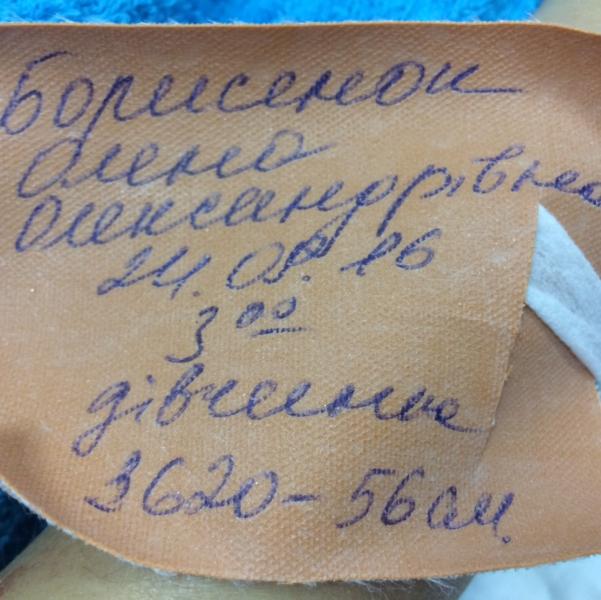 Борисенок
Олена
Олександрівна
24.08.16
3⁰⁰
дівчинка
3620-56см.